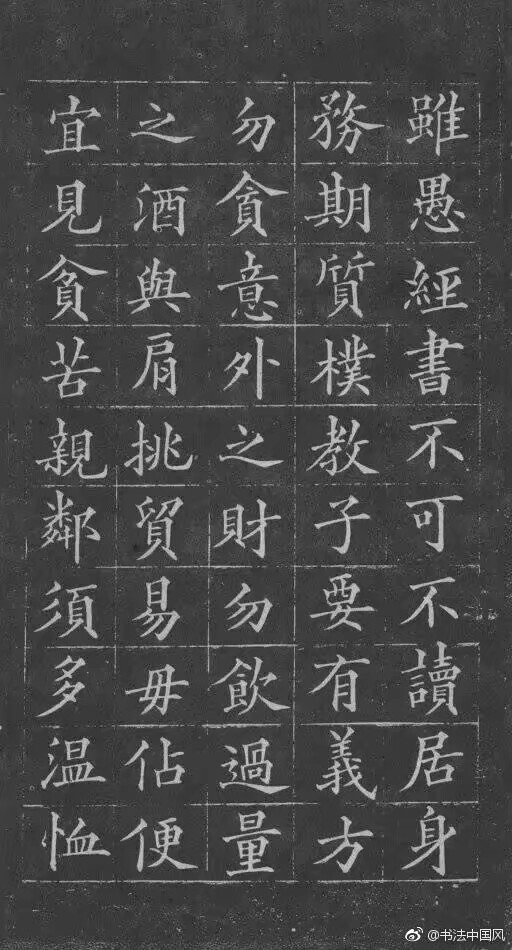 雖愚經書不可不讀居身
務期質樸教子要有義方
勿貪意外之財勿飲過量
之酒與肩挑貿易毋佔便
宜見貧苦親鄰須多温恤
@书法中国风